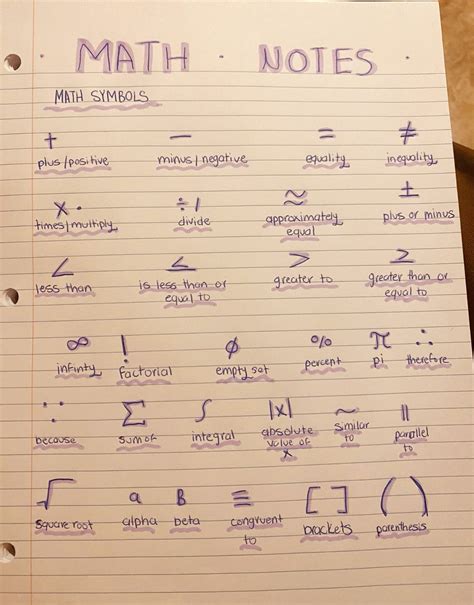 · MATH · NOTES ·
MATH SYMBOLS
+ − = ≠
plus/positive minus/negative equality inequality
× · ÷ / ≈ ±
times/multiply divide approximately equal plus or minus
< ≤ > ≥
less than is less than or equal to greater to greater than or equal to
∞ ! ∅ % π ∴
infinty factorial empty set percent pi therefore
∵ Σ ∫ |x| ~ ||
because sum of integral absolute value of x similar to parallel to
√ a B ≡ [ ] ( )
square root alpha beta congruent to brackets parenthesis